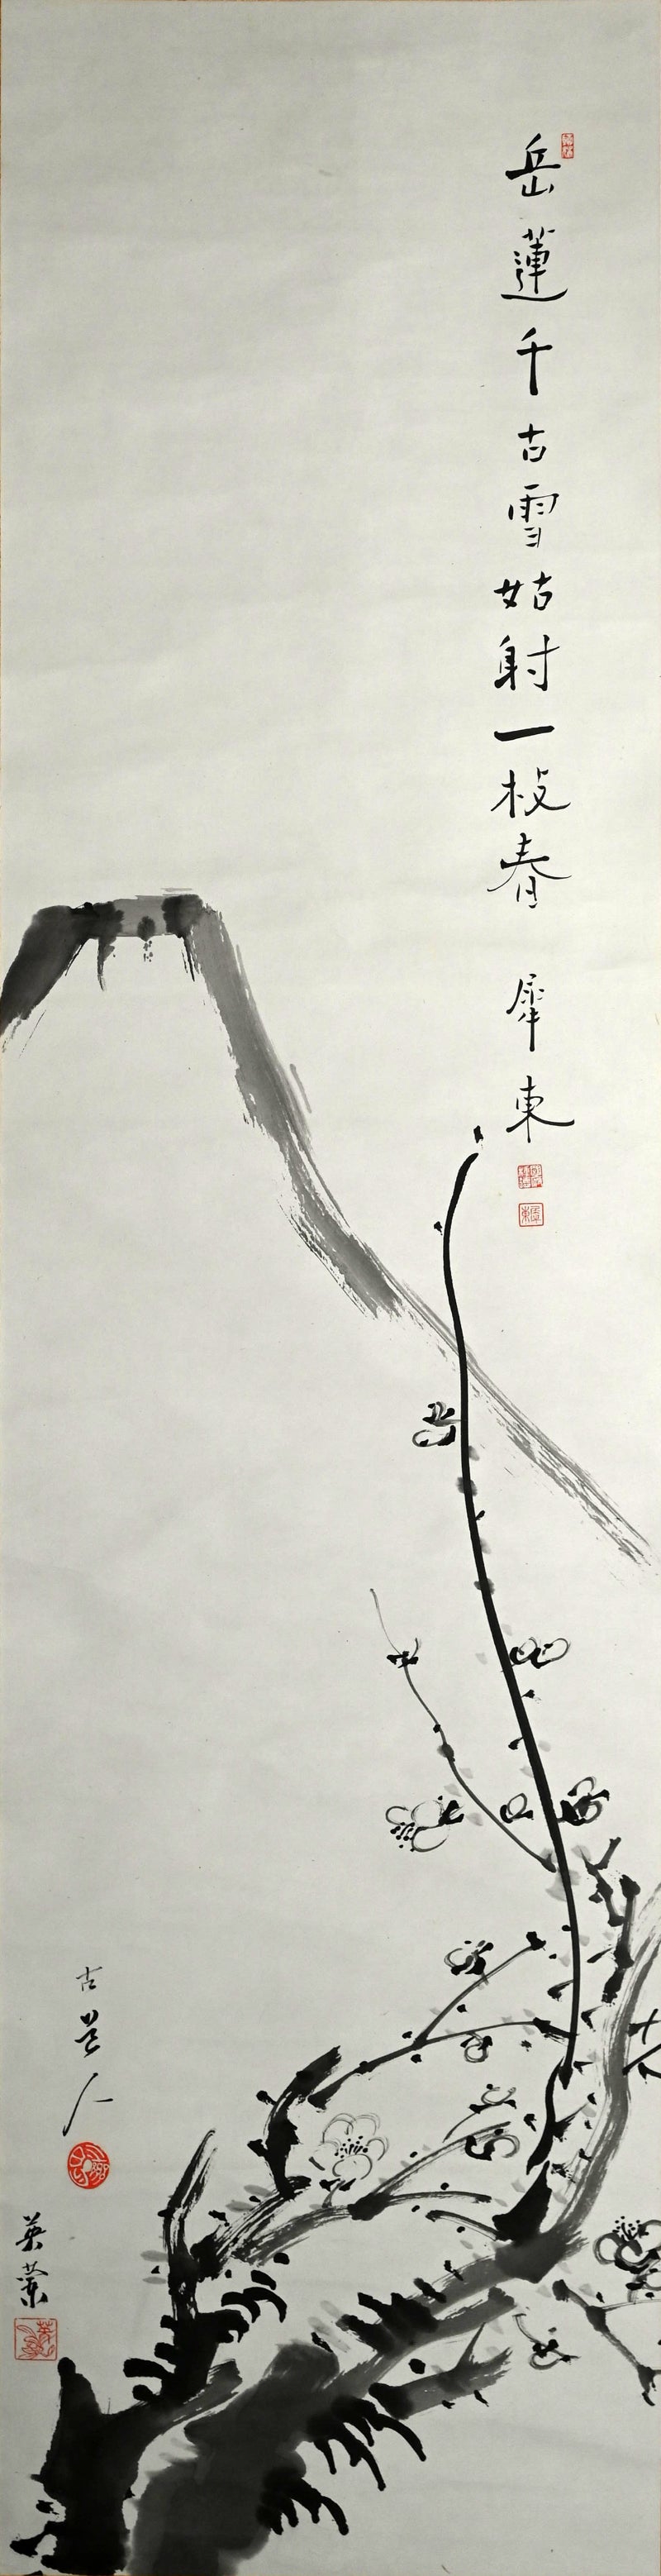 岳蓮千古雪姑射一枝春 犀東
古道人
英葉